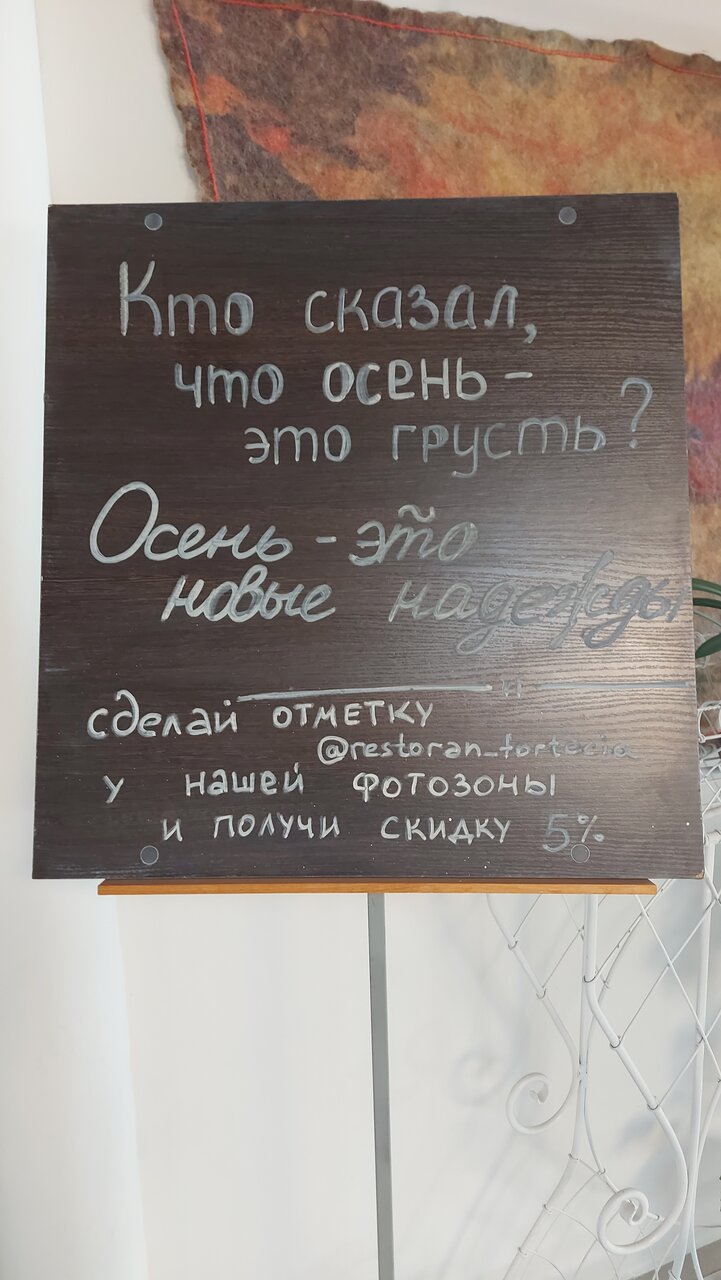 Кто сказал,
что осень -
это грусть?
Осень - это
новые надежды
и
сделай отметку
@restoran_fortecia
у нашей фотозоны
и получи скидку 5%